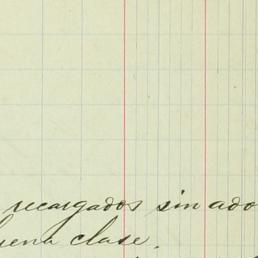 recargados sin ado
uena clase.